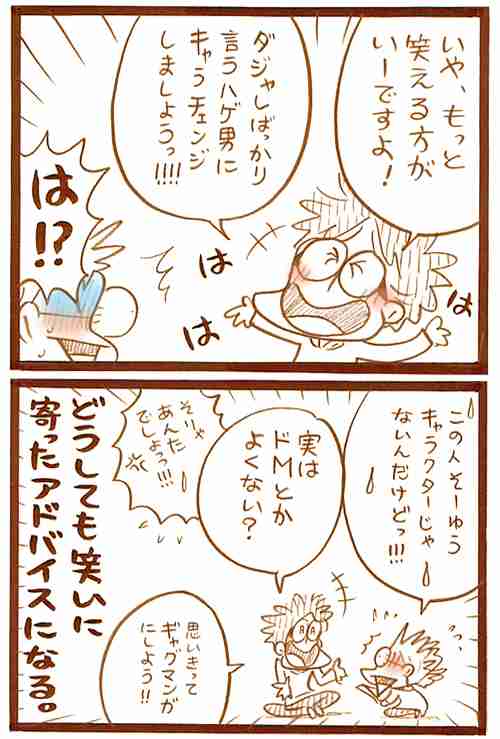 いや、もっと
笑える方が
いーですよ!
ダジャレばっかり
言うハゲ男に
キャラチェンジ
しましようっ!!!!
は
は
は
は!?
この人そーゆう
キャラクターじゃ
ないんだけどっ!!!
実は
ドMとか
よくない?
そりゃ
あんた
でしょっ!!!
思いきって
ギャグマンガ
にしよう!!
どうしても笑いに
寄ったアドバイスになる。